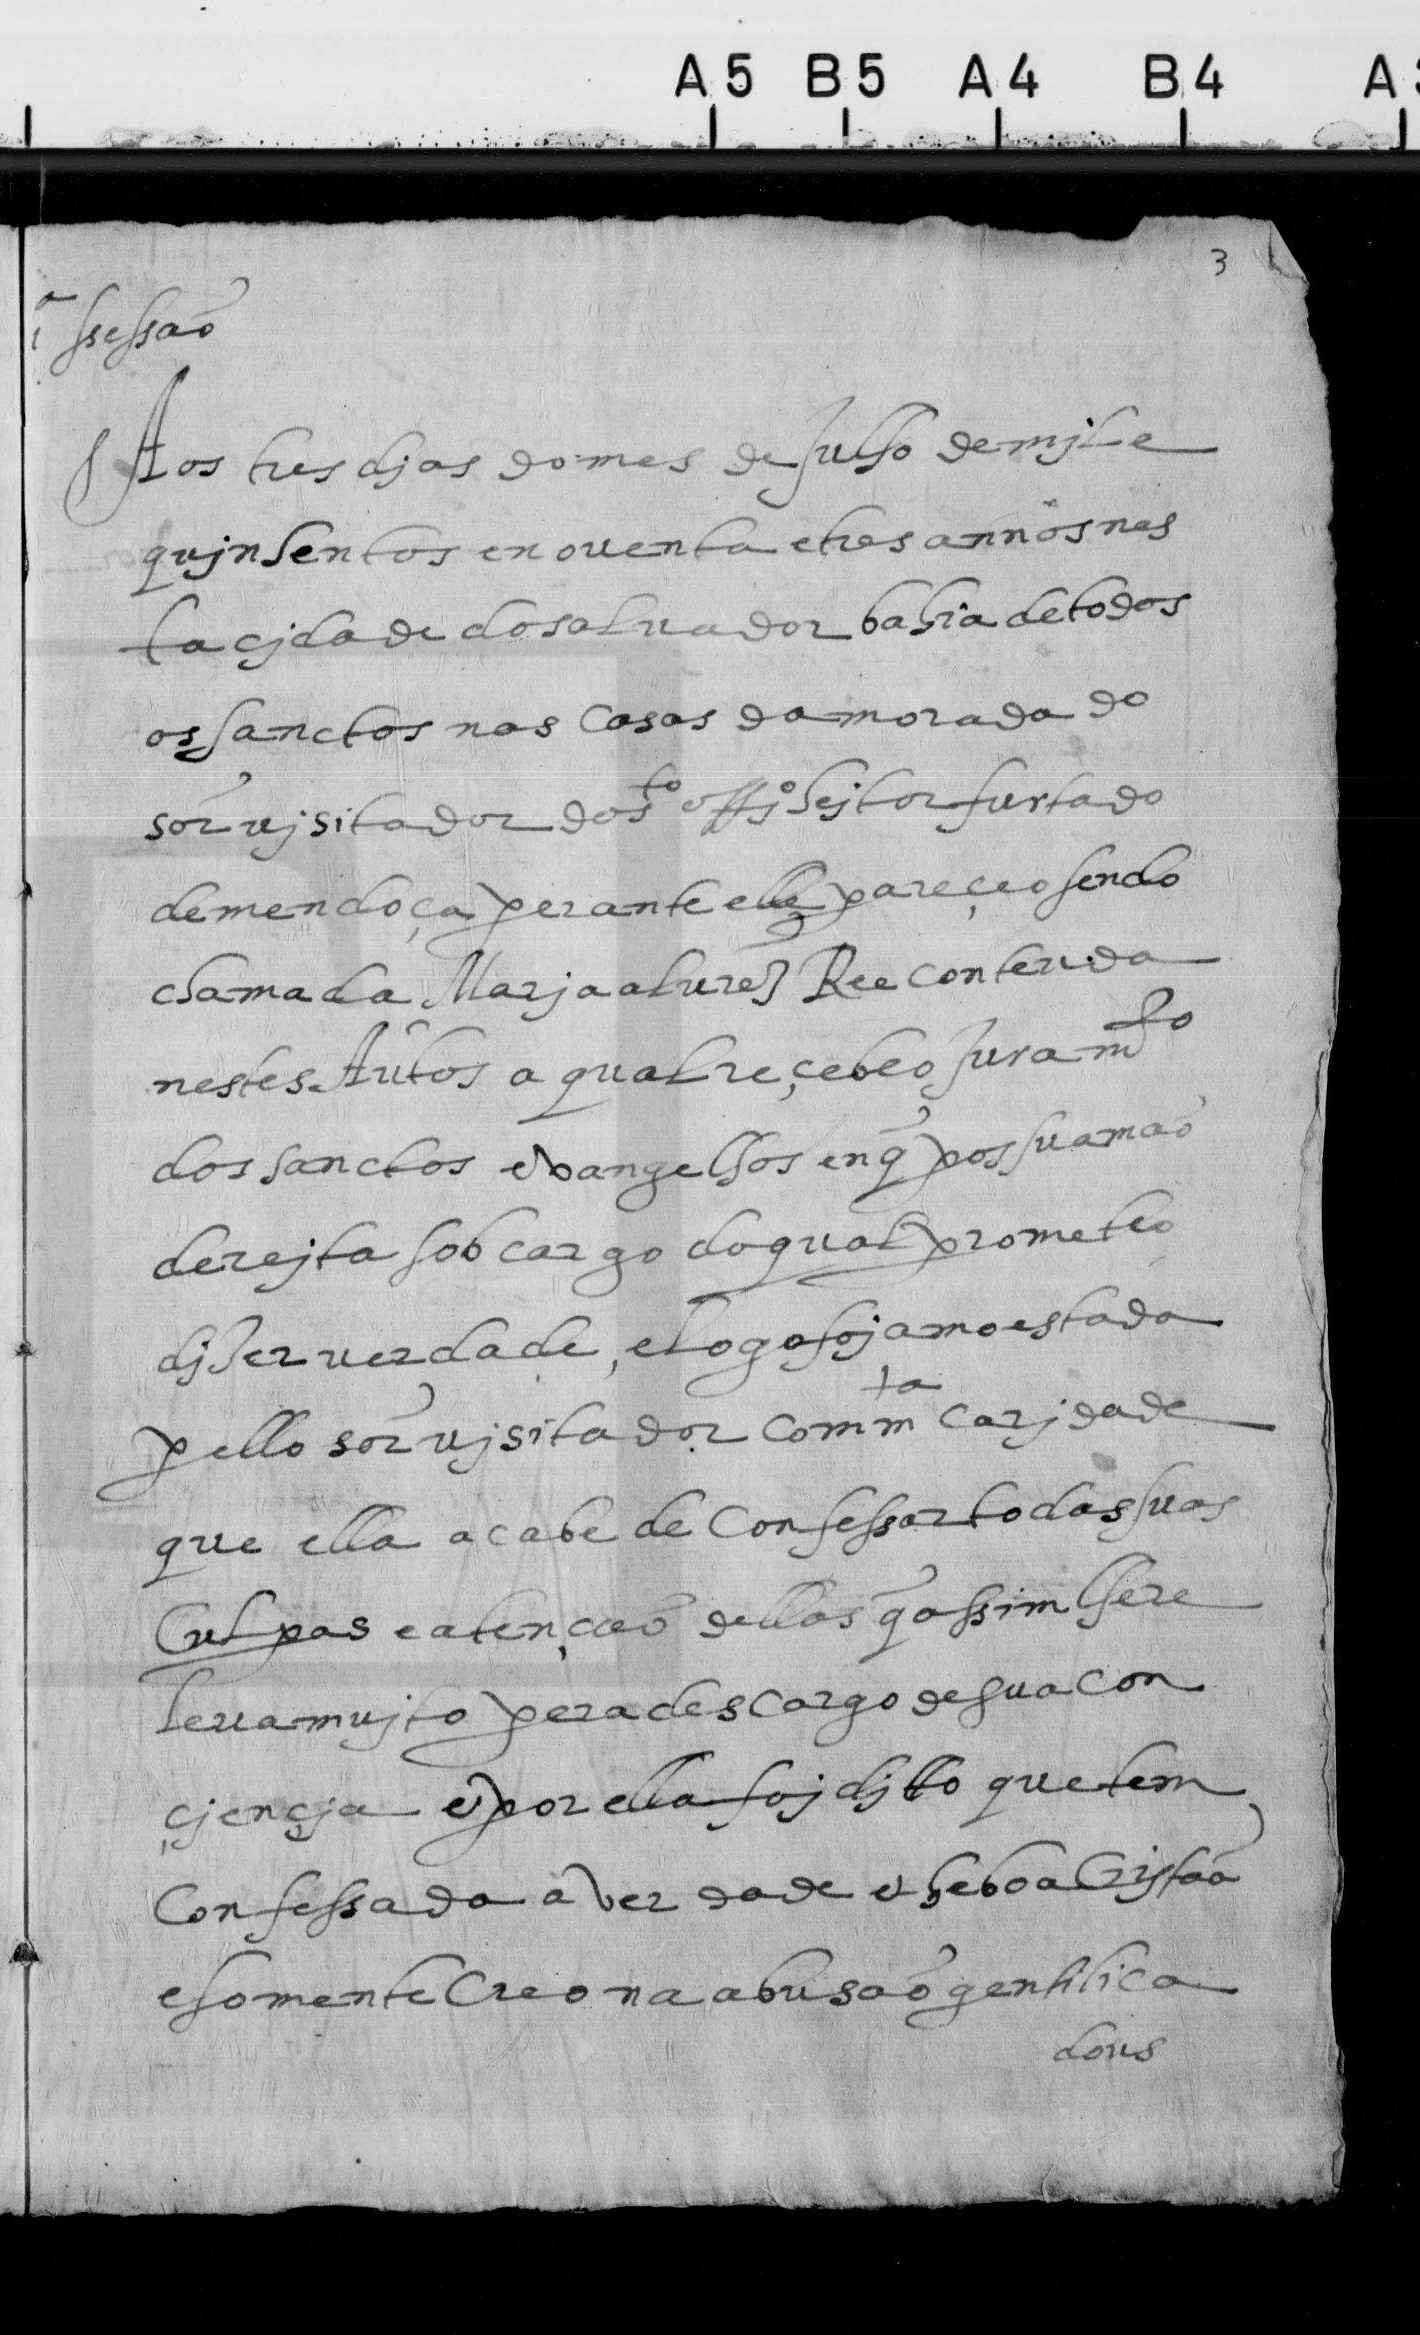 A5 B5 A4 B4 A
3
1ª ssessaõ
Aos tres djas do mes de Julho de mjl e
qujnhentos e noventa e tres annos nes
ta cjdade do saluador bahia de todos
os sanctos nas casas da morada do
sõr ujsitador do sto offjo hejtor furtado
de mendoça perante elle pareçeo sendo
chamada Marja alurez Ree conteuda
nestes Autos a qual reçebeo juramto
dos sanctos evangelhos en q̃ pos sua mão
derejta sob cargo do qual prometeo
djzer verdade, e logo foj amoestada
pello sõr ujsitador com mta carjdade
que ella acabe de confessar todas suas
Culpas e a tençaõ dellas q̃ assim lhe re
leua mujto pera descargo de sua con
çjençja e por ella foj djtto que tem
Confessada a verdade e he boa Cristaã
e somente creo na abusaõ gentilica
dous